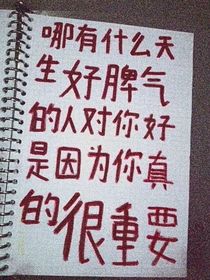 哪有什么天
生好脾气
的人对你好
是因为你真
的很重要